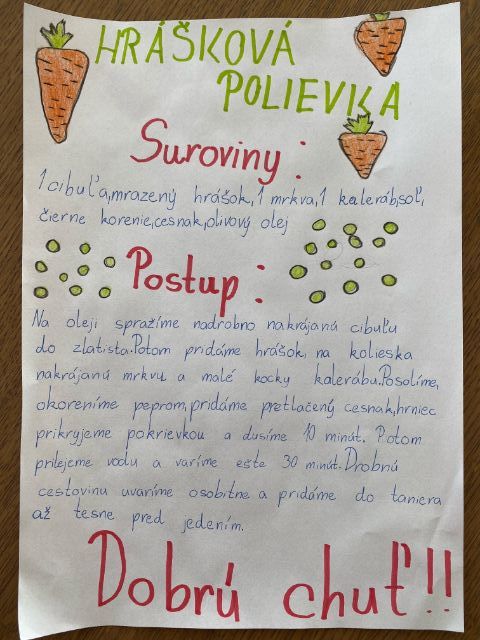 HRÁŠKOVÁ
POLIEVKA
Suroviny:
1 cibuľa,mrazený hrášok,1 mrkva,1 kaleráb,soľ,
čierne korenie,cesnak,olivový olej
Postup:
Na oleji spražíme nadrobno nakrájanú cibuľu
do zlatista.Potom pridáme hrášok, na kolieska
nakrájanú mrkvu a malé kocky kalerábu.Posolíme,
okoreníme peprom,pridáme pretlačený cesnak,hrniec
prikryjeme pokrievkou a dusíme 10 minút. Potom
prilejeme vodu a varíme ešte 30 minút.Drobnú
cestovinu uvaríme osobitne a pridáme do taniera
až tesne pred jedením.
Dobrú chuť!!